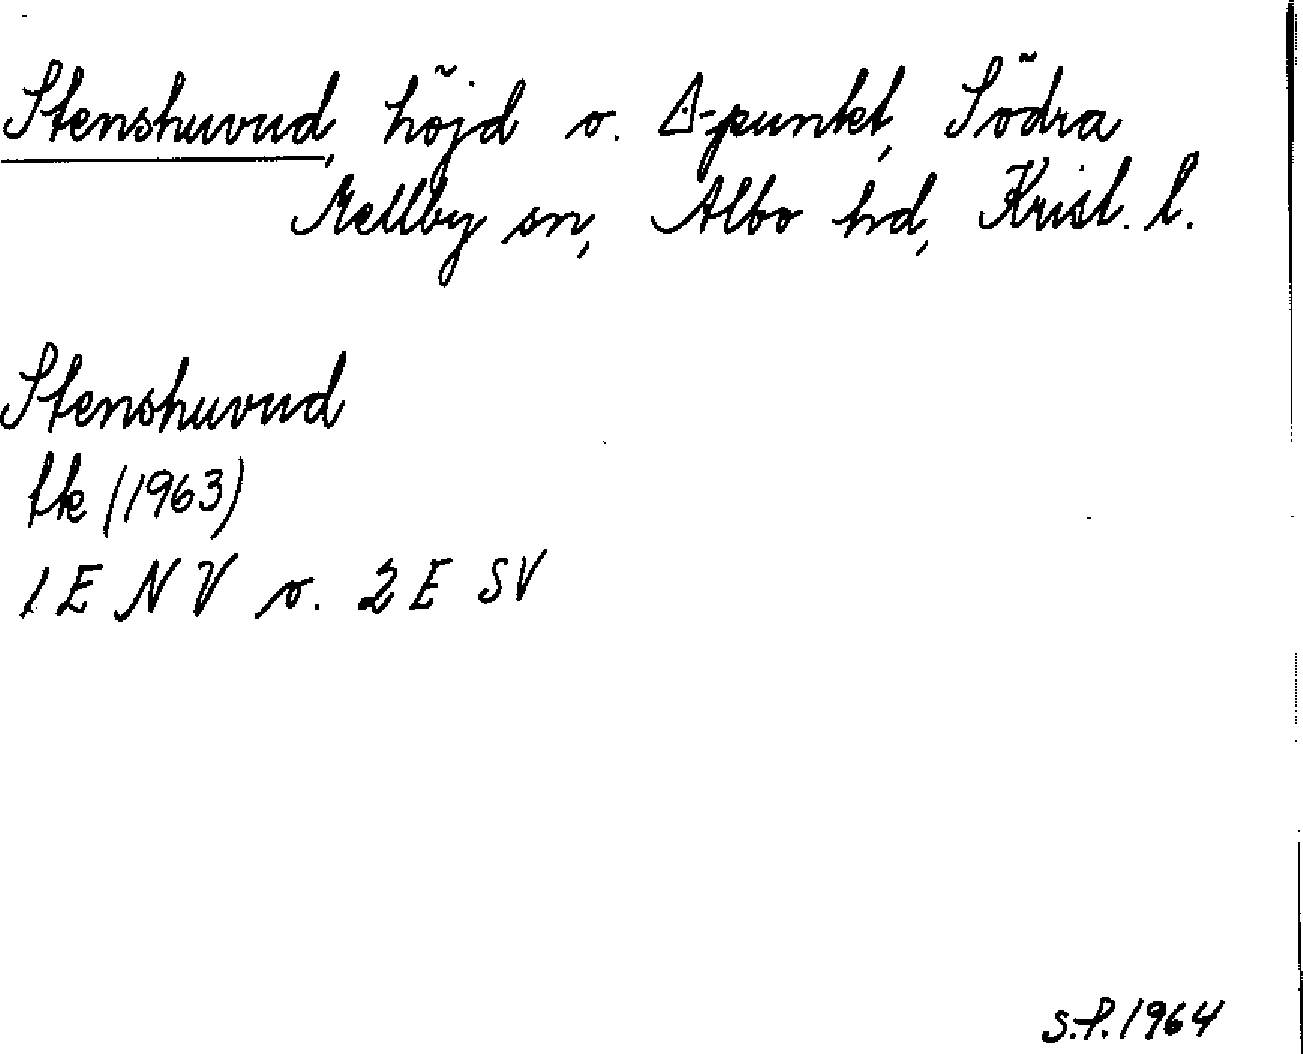 Stenshuvud, höjd o. △-punkt, Södra
Mellby sn, Albo hd, Krist. l.
Stenshuvud
tk (1963)
1 E NV o. 2 E SV
S.P. 1964